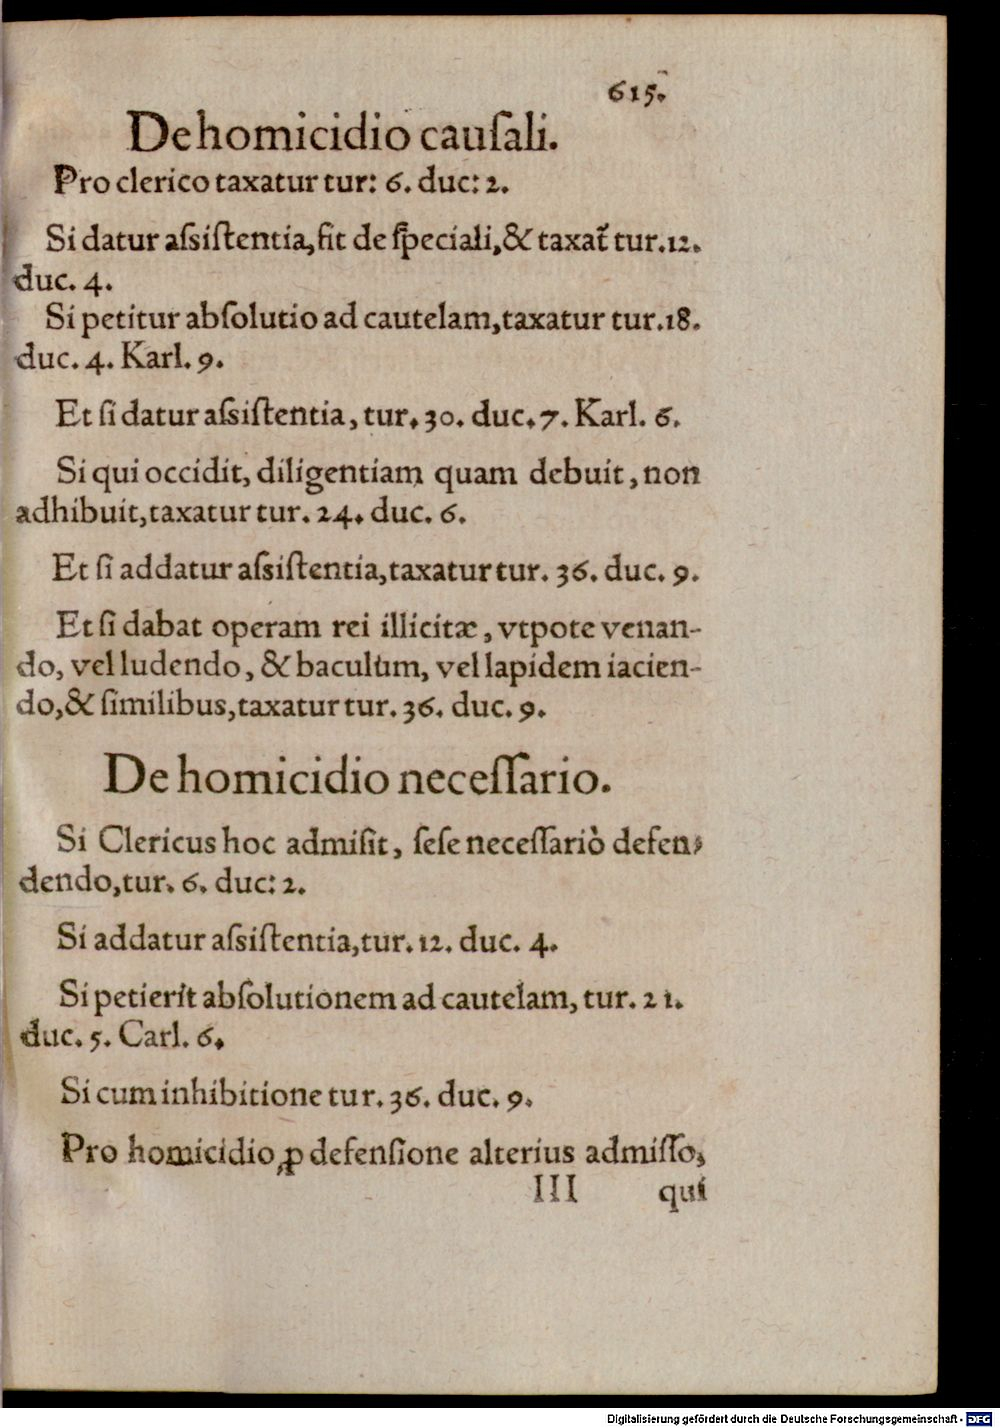 615.
De homicidio cauſali.
Pro clerico taxatur tur: 6. duc: 2.
Si datur aſsiſtentia, fit de ſpeciali, & taxat̃ tur. 12.
duc. 4.
Si petitur abſolutio ad cautelam, taxatur tur. 18.
duc. 4. Karl. 9.
Et ſi datur aſsiſtentia, tur. 30. duc. 7. Karl. 6.
Si qui occidit, diligentiam quam debuit, non
adhibuit, taxatur tur. 24. duc. 6.
Et ſi addatur aſsiſtentia, taxatur tur. 36. duc. 9.
Et ſi dabat operam rei illicitæ, vtpote venan-
do, vel ludendo, & baculum, vel lapidem iacien-
do, & ſimilibus, taxatur tur. 36. duc. 9.
De homicidio neceſſario.
Si Clericus hoc admiſit, ſeſe neceſſariò defen-
dendo, tur. 6. duc: 2.
Si addatur aſsiſtentia, tur. 12. duc. 4.
Si petierit abſolutionem ad cautelam, tur. 21.
duc. 5. Carl. 6.
Si cum inhibitione tur. 36. duc. 9.
Pro homicidio ꝓ defenſione alterius admiſſo,
III qui
Digitalisierung gefördert durch die Deutsche Forschungsgemeinschaft - DFG